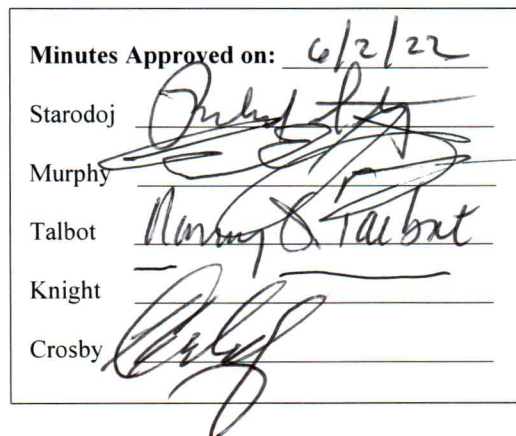 Minutes Approved on: 6/2/22
Starodoj
Murphy
Talbot Nancy S Talbot
Knight
Crosby